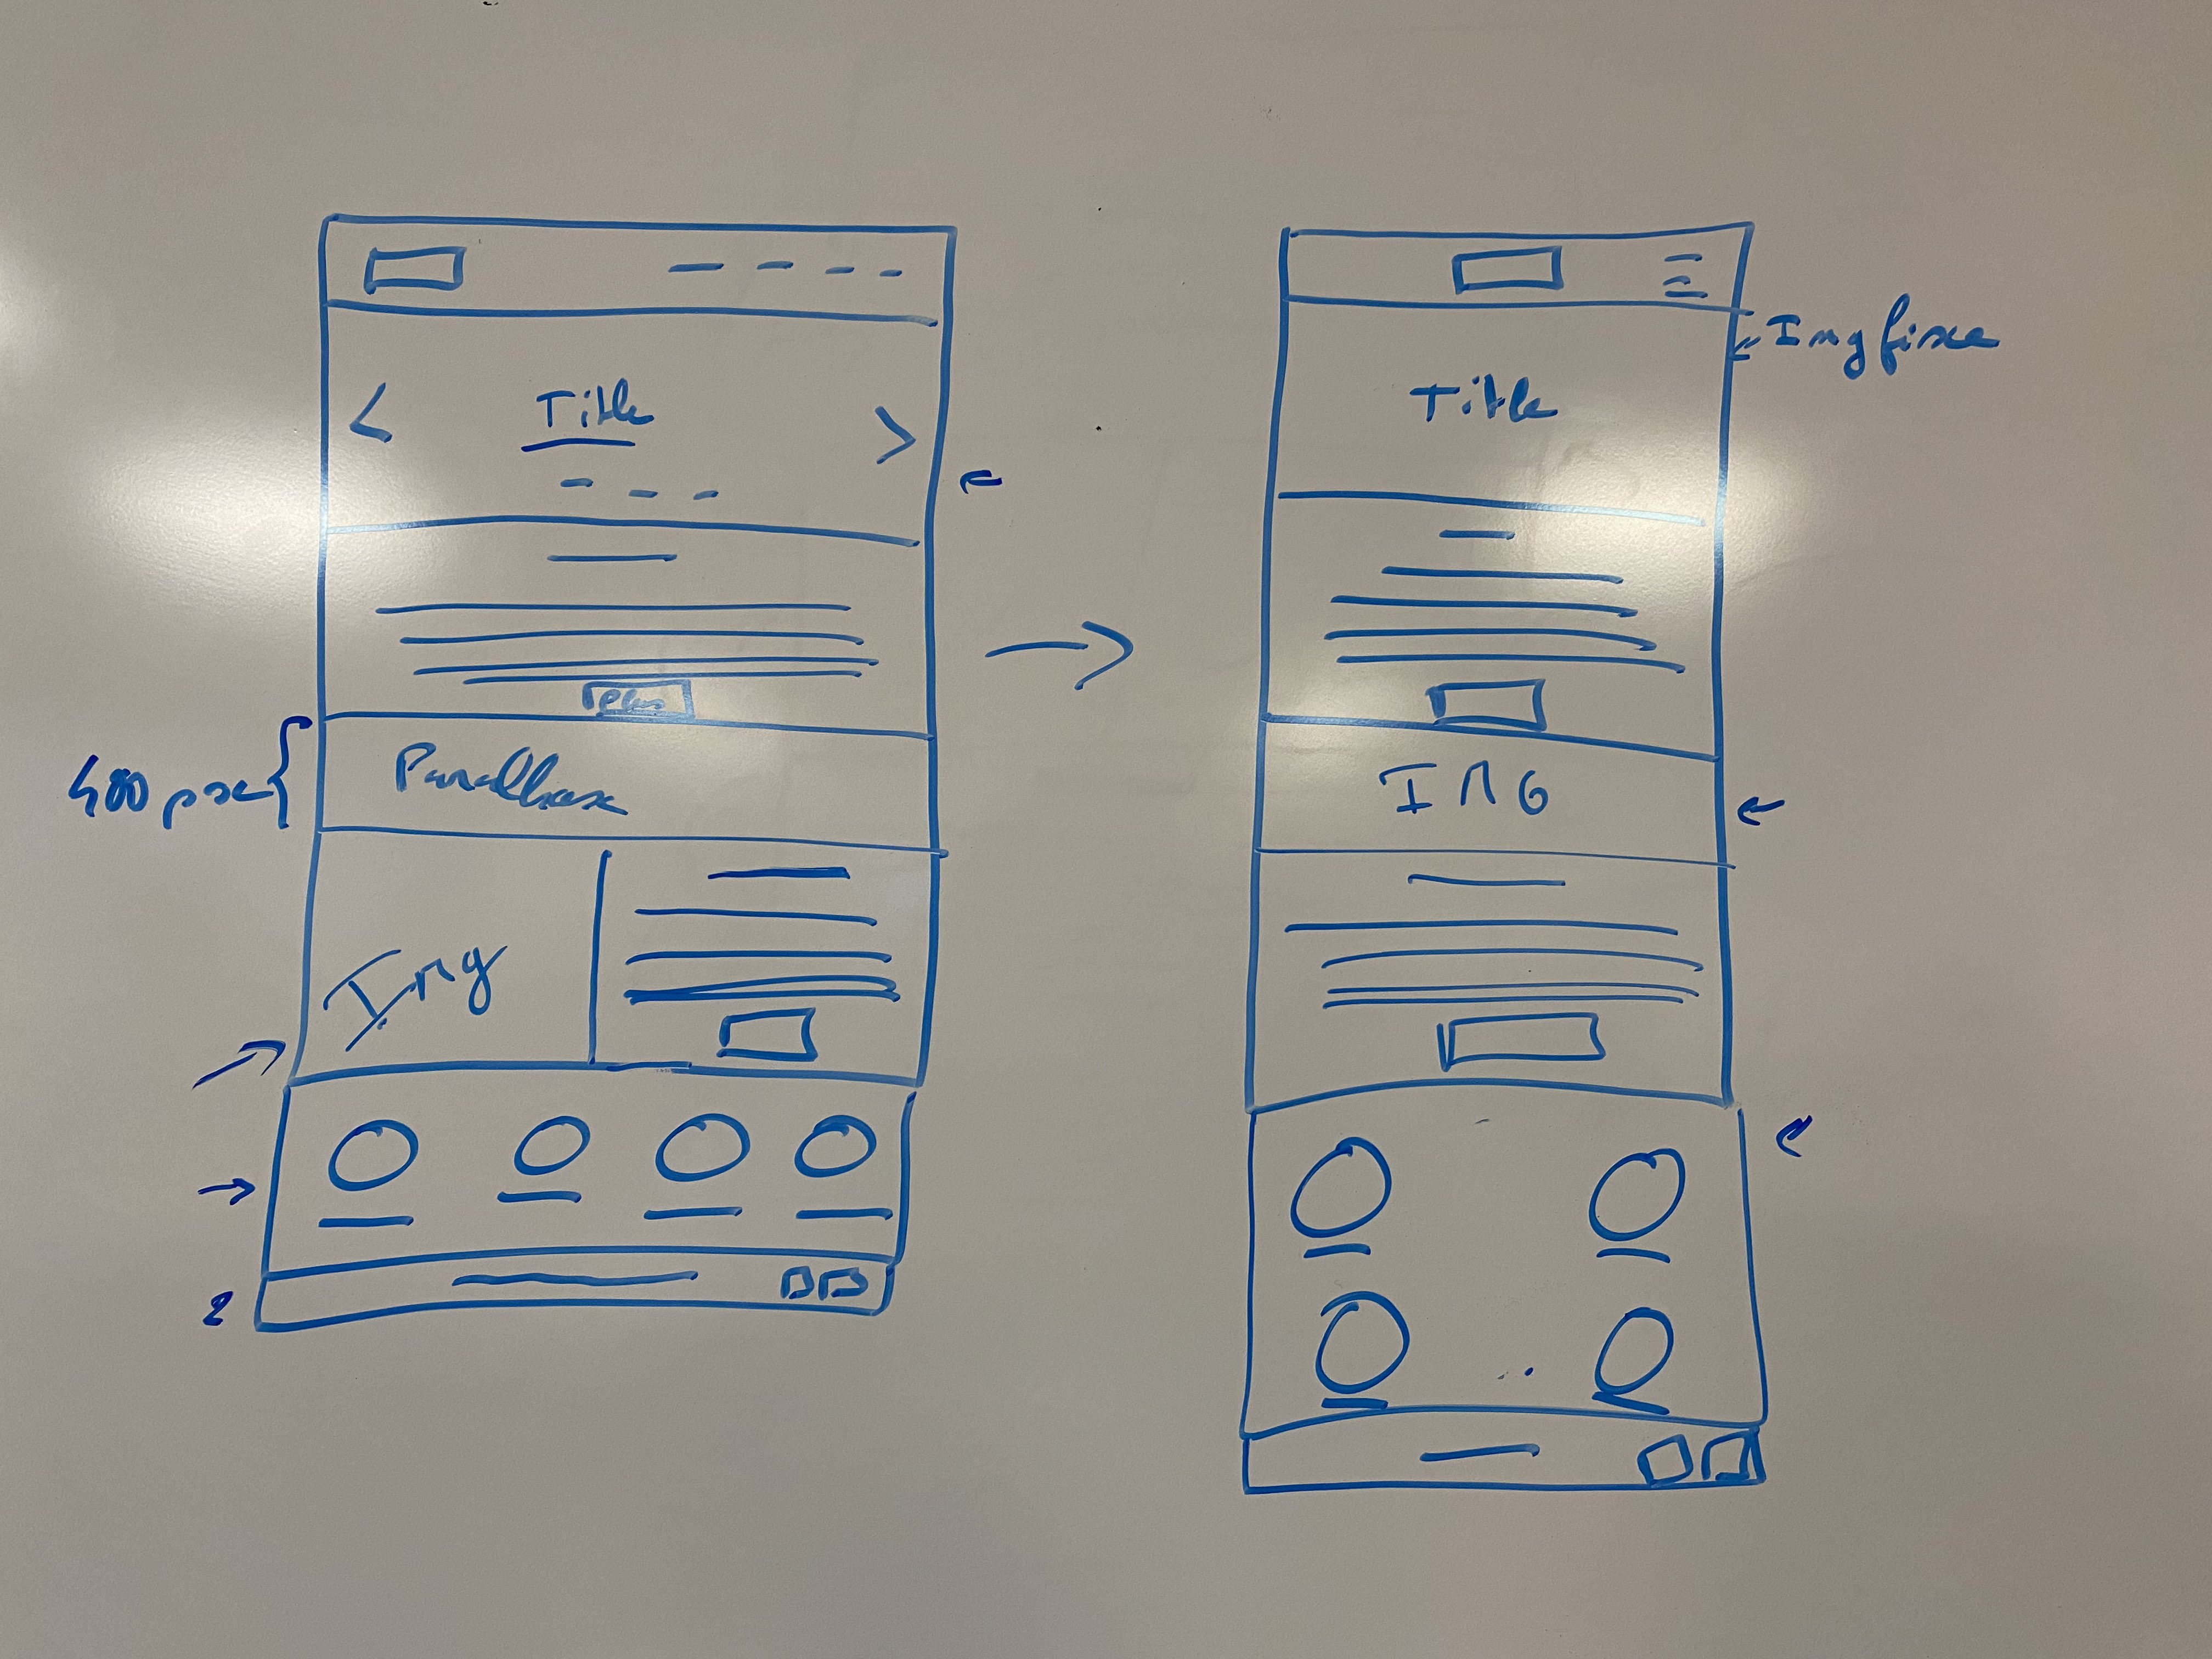 Title
Plus
400 px
Parallax
Img
Img fixe
Title
IMG